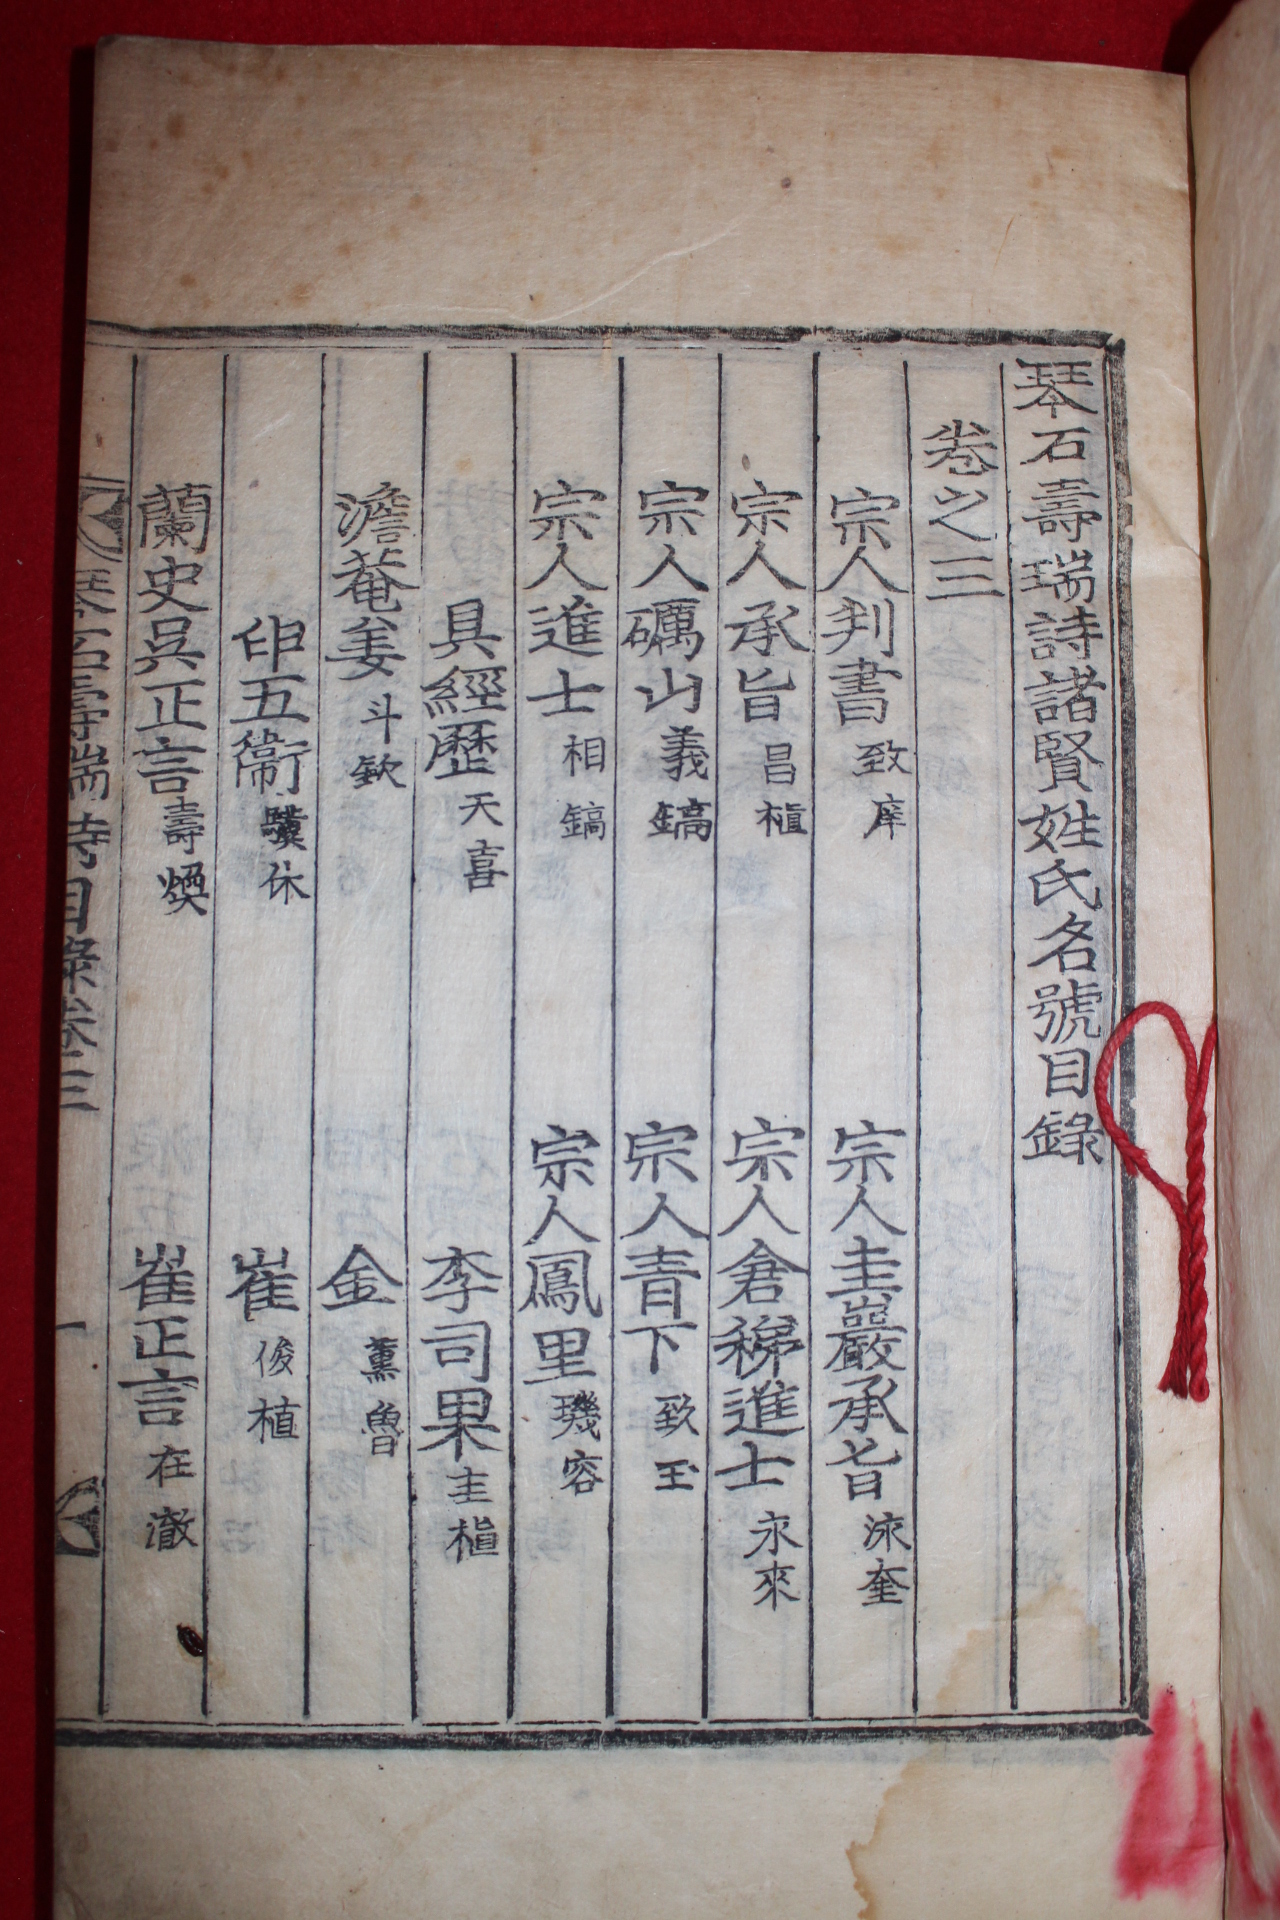 琴石壽瑞詩諸賢姓氏名號目錄
卷之三
宗人判書 致庠 宗人圭巖承旨 泳奎
宗人承旨 昌楨 宗人倉稊進士 永來
宗人礪山 義鎬 宗人青下 致玉
宗人進士 相鎬 宗人鳳里 璣容
具經歷 天喜 李司果 圭楨
澹菴姜 斗欽 金 薰魯
五衛 驥休 崔 俊植
蘭史吳正言 壽煥 崔正言 在澈
琴石壽瑞詩目錄卷三 一